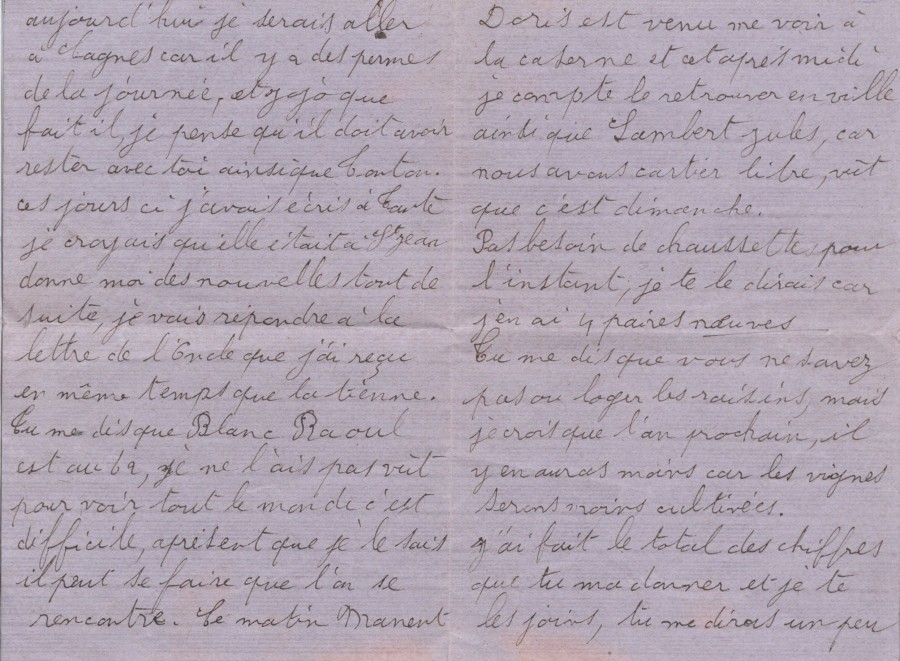 aujourd'hui je serais aller
à Cagnes car il y a des permes
de la journée, et jojo que
fait il, je pense qu'il doit avoir
rester avec toi ainsi que Tonton.
ces jours ci j'avais écris à Tante
je croyais qu'elle était a St Jean
donne moi des nouvelles tout de
suite, je vais répondre à la
lettre de l'Oncle que j'ai reçu
en même temps que la tienne.
Tu me dis que Blanc Raoul
est au 62, je ne l'ais pas vût
pour voir tout le monde c'est
difficile, aprésent que je le sais
il peut se faire que l'on se
rencontre. Ce matin Manent
Doris est venu me voir à
la caserne et cet aprés midi
je compte le retrouver en ville
ainsi que Lambert jules, car
nous avons cartier libre, vût
que c'est dimanche.
Pas besoin de chaussettes pour
l'instant, je te le dirais car
j'en ai 4 paires nœuves
Tu me dis que vous ne savez
pas ou loger les raisins, mais
je crois que l'an prochain, il
y en auras moins car les vignes
serons moins cultivées.
j'ai fait le total des chiffres
que tu ma donner et je te
les joins, tu me diras un peu